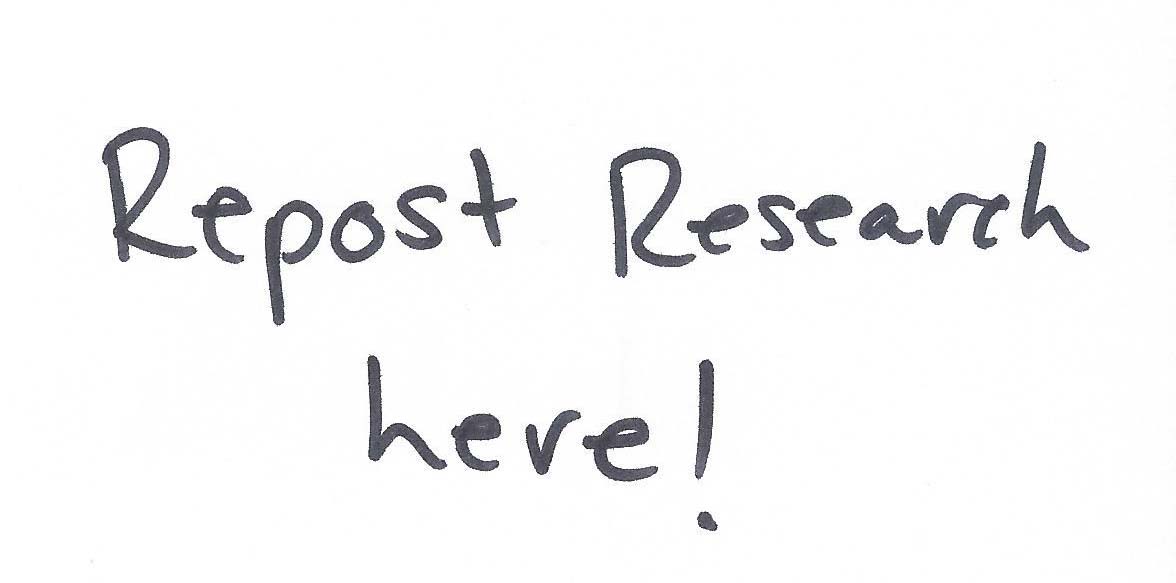 Repost Research
here!